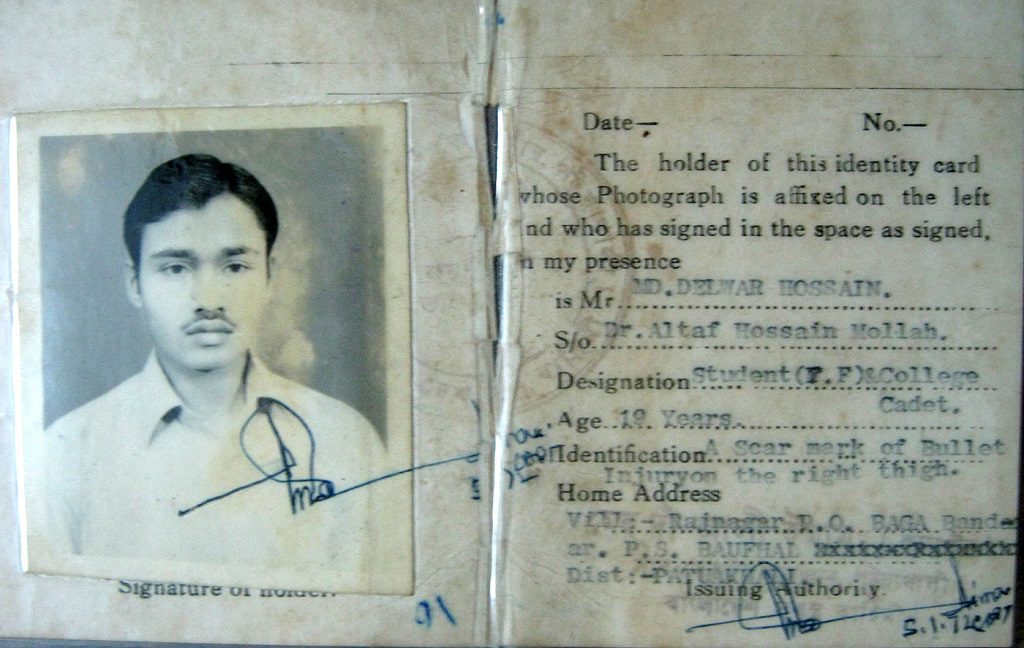 Signature of holder.
Date— No.—
The holder of this identity card
whose Photograph is affixed on the left
nd who has signed in the space as signed,
n my presence
is Mr. MD. DELWAR HOSSAIN.
S/o Dr. Altaf Hossain Mollah.
Designation Student(F.F)&College
Cadet.
Age 19 Years.
Identification A Scar mark of Bullet
Injuryon the right thigh.
Home Address
Vill:- Rajnagar P.O. BAGA Bande
ar. P.S. BAUFHAL
Dist:-PATUAKHALI
Issuing Authority.